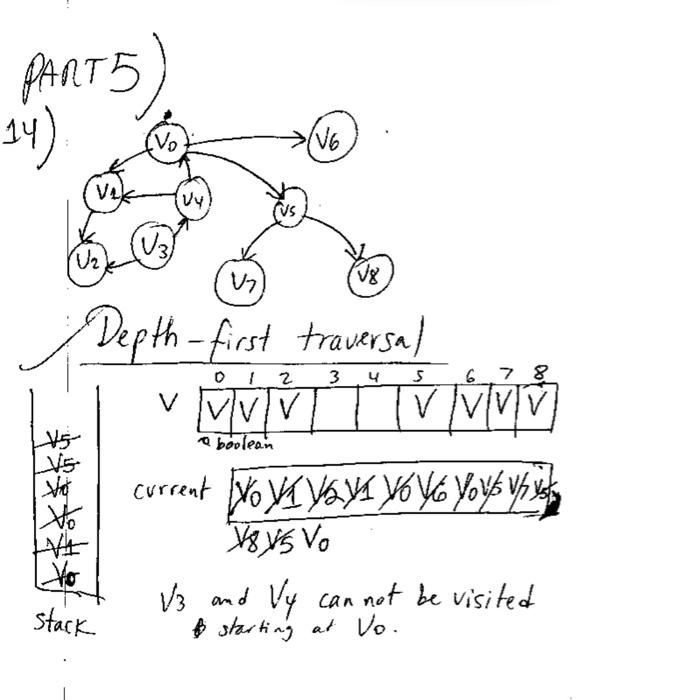 PART 5)
14)
V0
V6
V1
V4
V5
V3
V2
V7
V8
Depth-first traversal
0 1 2 3 4 5 6 7 8
V V V V V V V V
boolean
V5
V5
V0
V0
V1
V0
stack
current V0 V1 V2 V1 V0 V6 V0 V5 V7 V5
V8 V5 V0
V3 and V4 can not be visited
starting at V0.